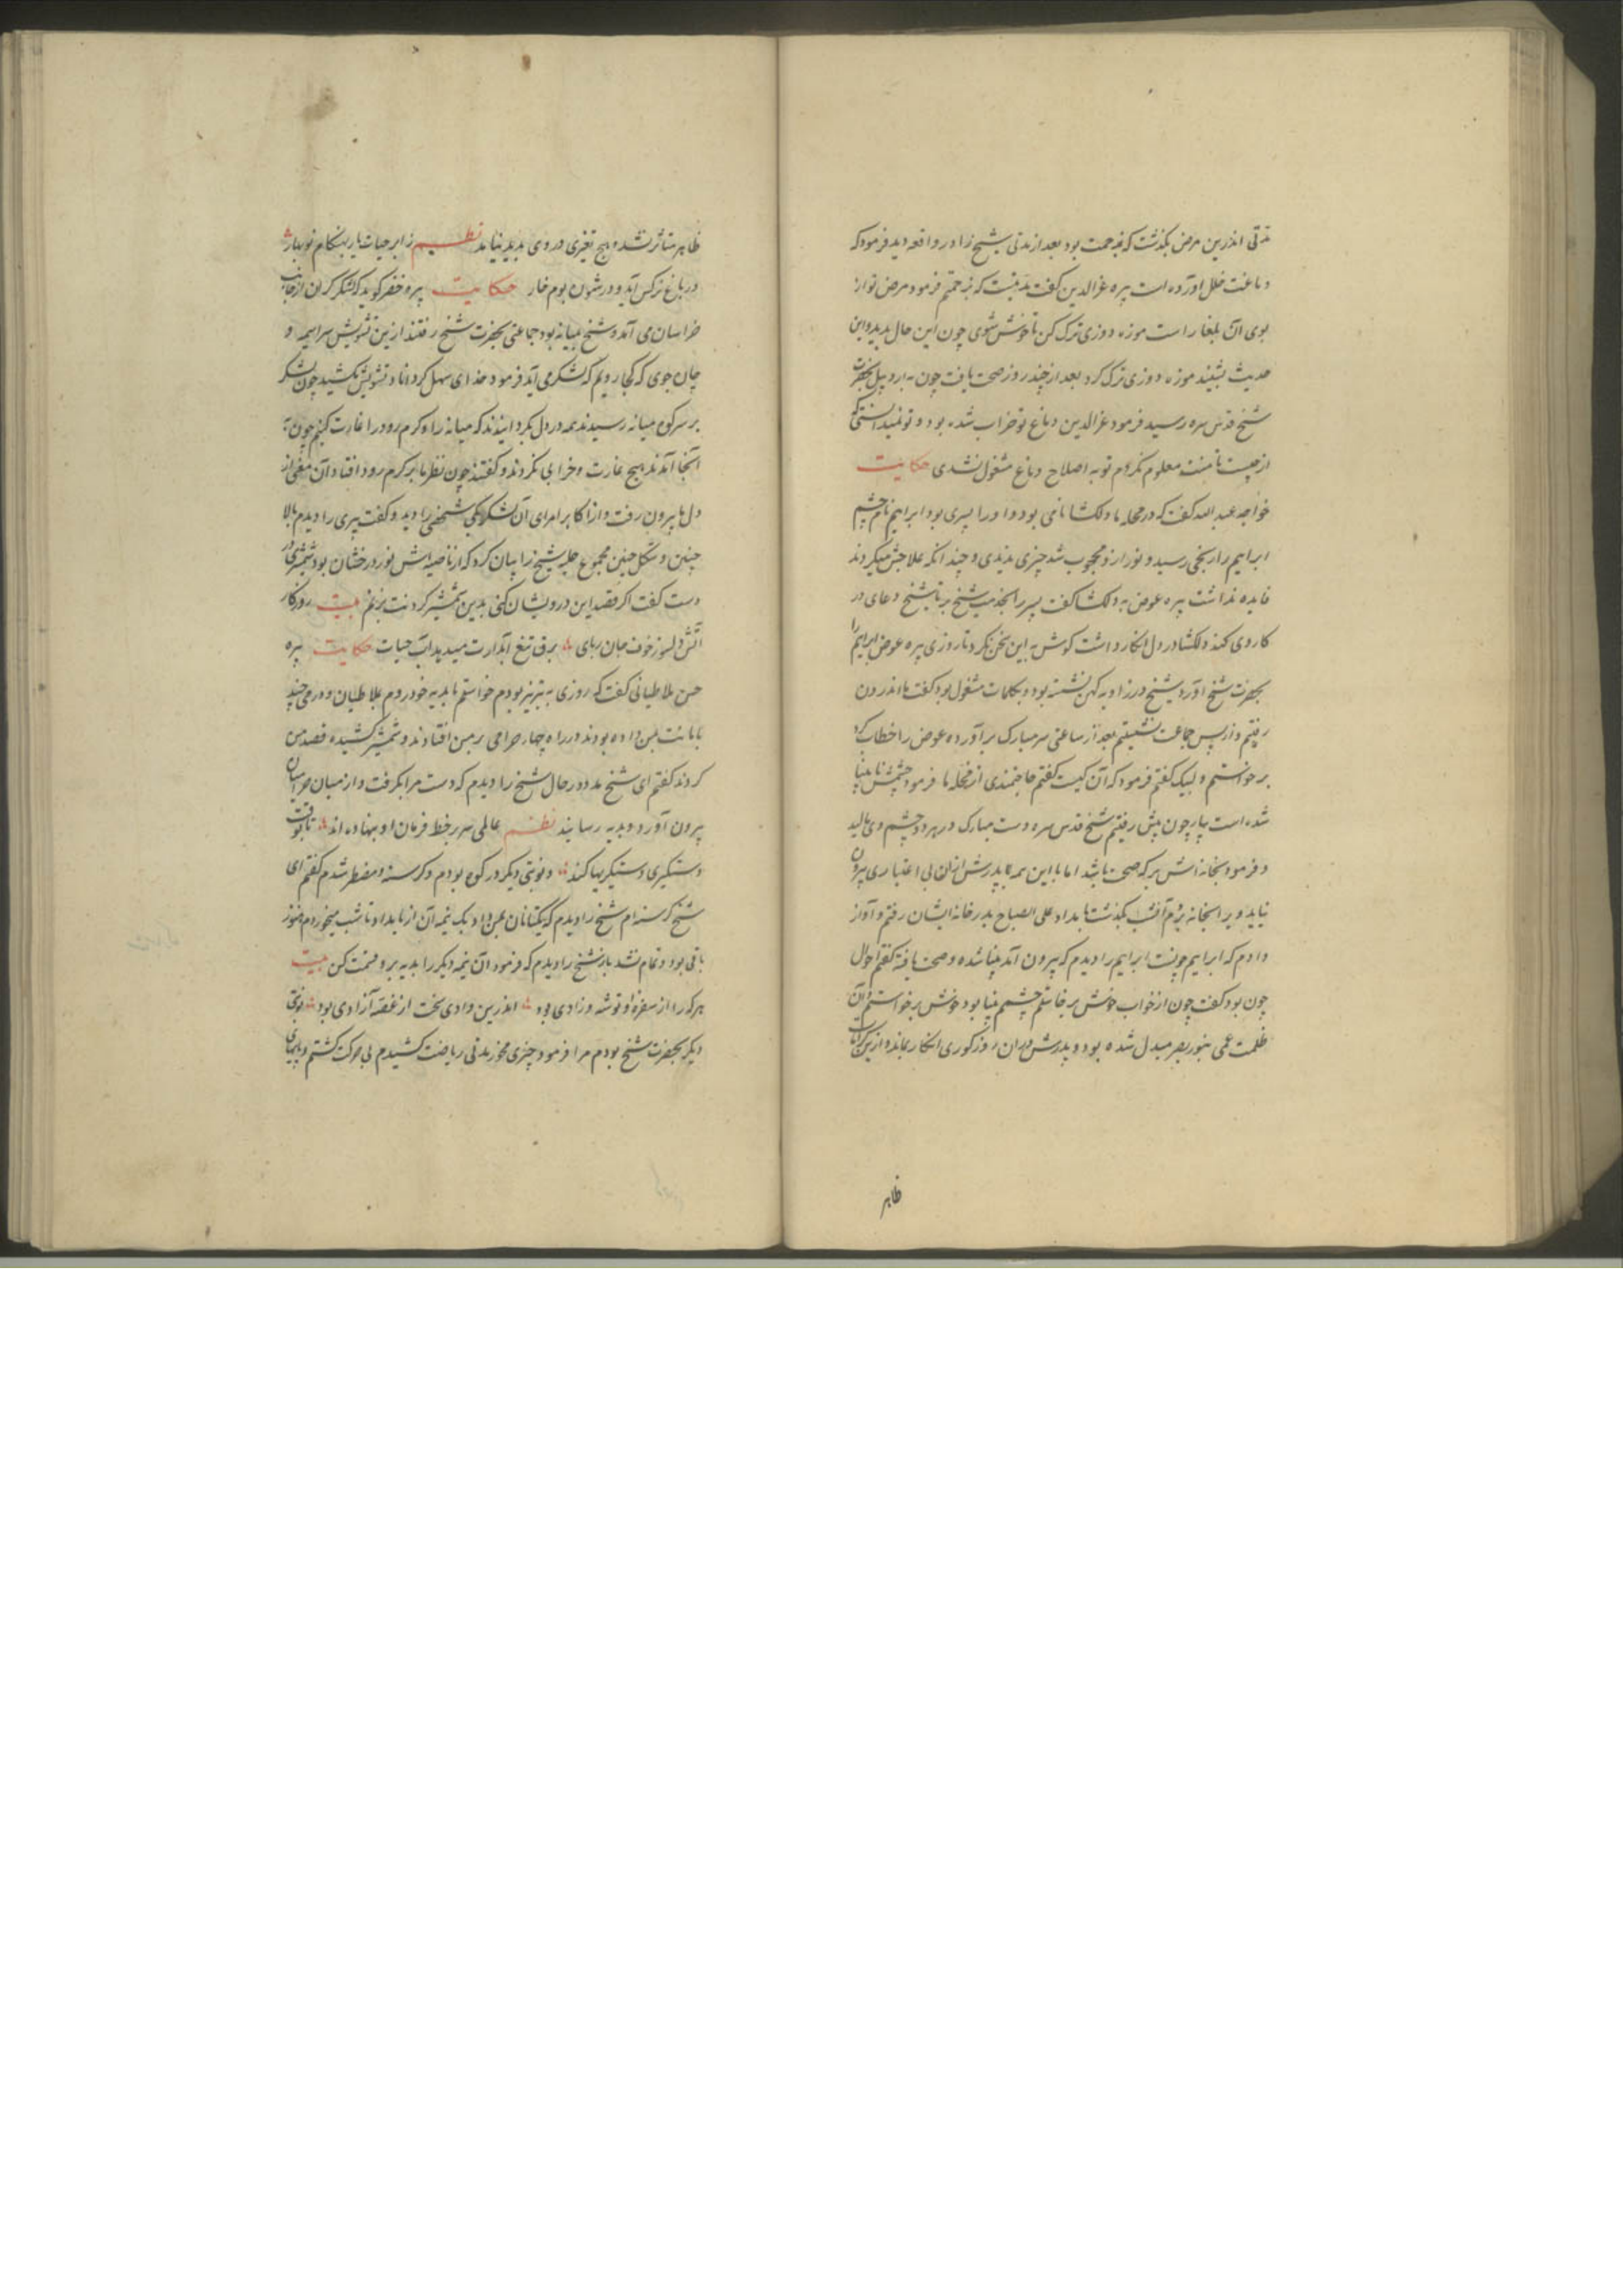 مدتی اندرین مرض بگذشت که بزحمت بود بعد از مدتی شیخ را در واقعه دید فرمود که
دماغت خلل آورده است پیره عزالدین گفت مدتیست که بزحمتم فرمود مرض تو از
بوی آن بلغار است موزه دوزی ترک کن تا خوش شوی چون این حال بدید و این
حدیث بشنید موزه دوزی ترک کرد بعد از چند روز صحت یافت چون به اردبیل بحضرت
شیخ قدس سره رسید فرمود عزالدین دماغ تو خراب شده بود و تو نمیدانستی که
از چیست تا منت معلوم نکردم تو به اصلاح دماغ مشغول نشدی حکایت
خواجه عبد الله گفت که در محله ما دلکشا نامی بود و او را پسری بود ابراهیم نام چشم
ابراهیم را رنجی رسید و نور ازو محجوب شد چیزی ندیدی و چندانکه علاجش میکردند
فایده نداشت پیره عوض به دلکشا گفت پسر را بخدمت شیخ بر تا شیخ دعای در
کار وی کند دلکشا در دل انکار داشت گوش به این سخن نکرد تا روزی پیره عوض ابراهیم را
بحضرت شیخ آورد شیخ در زاویه کهن نشسته بود و بکلمات مشغول بود گفت ما اندرون
رفتیم و از پس جماعت نشستیم بعد از ساعتی سر مبارک برآورده عوض را خطاب کرد
برخواستم و لبیک گفتم فرمود که آن کیست گفتم حاجتمندی از محله ما فرمود چشمش نابینا
شده است بیار چون پیش رفتیم شیخ قدس سره دست مبارک در هر دو چشم وی مالید
و فرمود بخانه اش بر که صحت باشد اما با این همه پدرش ازان بی اعتباری بیرون
نیاید ویرا بخانه بردم آنشب بگذشت بامداد علی الصباح بدر خانه ایشان رفتم و آواز
دادم که ابراهیم چونست ابراهیم را دیدم که بیرون آمد بینا شده و صحت یافته گفتم احوال
چون بود گفت چون از خواب خوش برخاستم چشمم بینا بود خوش برخواستم و آن
ظلمت عمی بنور بصر مبدل شده بود و پدرش دران روز کوری انکار بماند و ازین کرامات
ظاهر
ظاهر متاثر نشد و هیچ تغیری در وی پدید نیامد نظم ز ابر حیات بار بهنگام نوبهار
در باغ نرگس آید و در شون بوم خار حکایت پیره خضر گوید که لشکر گران از جانب
خراسان می آمد و شیخ بمیانه بود جماعتی بحضرت شیخ رفتند ازین تشویش سراسیمه و
چان جوی که کجا رویم که لشکر می آید فرمود خدای سهل گرداناد تشویش مکشید چون لشکر
بر سر کوه میانه رسیدند همه در دل بگردانیدند که میانه را و کرم رود را غارت کنیم چون به
آنجا آمدند هیچ غارت و خرابی نکردند و گفتند چون نظر ما بر کرم رود افتاد آن معنی از
دل ما بیرون رفت و از اکابر امرای آن لشکر یکی شیخ را دید و گفت پیری را دیدم بالا
چنین و شکل چنین مجموع حلیه شیخ را بیان کرد که از ناصیه اش نور درخشان بود شمشیری در
دست گفت اگر قصد این درویشان کنی بدین شمشیر گردنت بزنم بیت روزگار
آتش دلسوز خوف جان ربای برق تیغ آبدارت میدید آب حیات حکایت پیره
حسن ملاطیانی گفت که روزی به تبریز بودم خواستم تا بدیه خود روم بملاطیان و درمی چند
بامانت بمن داده بودند در راه چهار حرامی بر من افتادند و شمشیر کشیده قصد من
کردند گفتم ای شیخ مدد در حال شیخ را دیدم که دست مرا بگرفت و از میان حرامیان
بیرون آورد و بدیه رسانید نظم عالمی سر بر خط فرمان او بنهاده اند تا بوقت
دستگیری دستگیریها کند و نوبتی دیگر در کوه بودم و گرسنه و مضطر شدم گفتم ای
شیخ گرسنه ام شیخ را دیدم که یکتا نان بمن داد یک نیمه آن از بامداد تا شب میخوردم هنوز
باقی بود و تمام نشد باز شیخ را دیدم که فرمود آن نیمه دیگر را بدیه بر و قسمت کن بیت
هر که را از سفره او توشه و زادی بود اندرین وادی سخت از غصه آزادی بود نوبتی
دیگر بحضرت شیخ بودم مرا فرمود چیزی مخور مدتی ریاضت کشیدم بی حرکت گشتم و پایهای